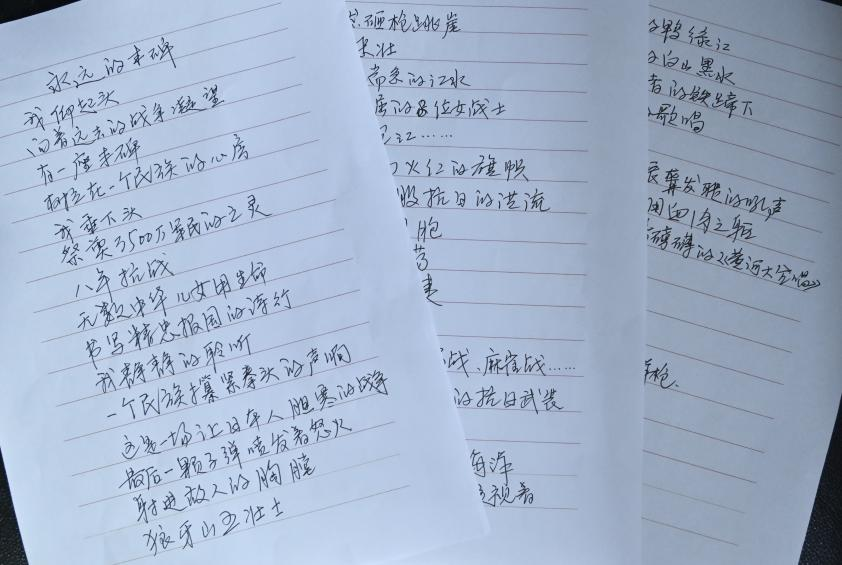 永远的丰碑
我仰起头
向着远去的战争凝望
有一座丰碑
树立在一个民族的心房
我垂下头
祭奠3500万军民的亡灵
八年抗战
无数中华儿女用生命
书写精忠报国的诗行
我静静的聆听
一个民族攥紧拳头的声响
这是一场让日本人胆寒的战争
最后一颗子弹喷发着怒火
射进敌人的胸膛
狼牙山五壮士
砸枪跳崖
壮
常东的江水
的8位女战士
江……
火红的旗帜
股抗日的洪流
胞
战、麻雀战……
的抗日武装
海洋
视着
鸭绿江
白山黑水
者的铁蹄下
歌唱
发聩的吼声
血肉之躯
磅礴的《黄河大合唱》
枪.